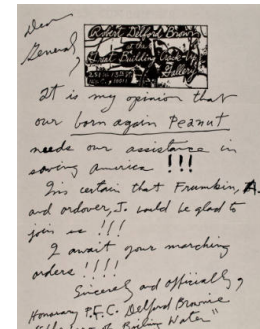 Dear
General,
Robert Delford Brown
at the
Great Building Crack-Up
Gallery
251 W 13th
It is my opinion that
our born again Peanut
needs our assistance in
saving america !!!
I'm certain that Frumkin, A.
and ordover, J. would be glad to
join us !!!
I await your marching
orders !!!!
Sincerely and officially,
Honorary P.F.C. Delford Brownie
of Boiling Water"